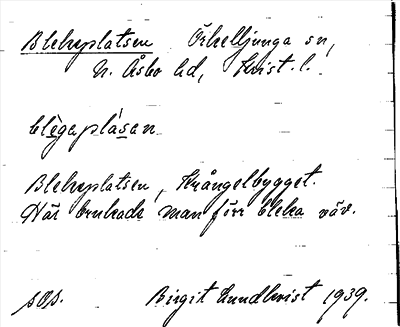 Blekeplatsen Örkelljunga sn,
N. Åsbo hd, Krist. l.
blègaplásan
Blekeplatsen, Krångelbygget.
Här brukade man förr bleka väv.
sOs. Birgit Lundkvist 1939.